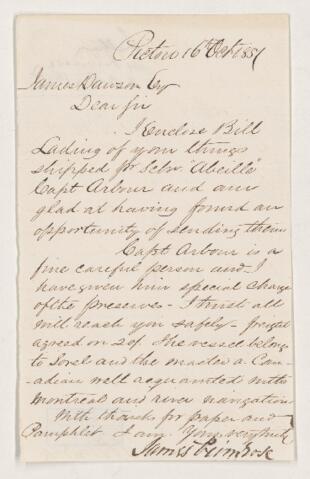 Pictou 16 Oct 1851
James Dawson Esq
Dear Sir
I Enclose Bill
Lading of your things
shipped pr Schr "Abeille"
Capt Arbour and am
glad at having found an
opportunity of sending them
Capt Arbour is a
fine careful person and I
have given him special charge
of the preserves - I trust all
will reach you safely - freight
agreed on 20/. The vessel belongs
to Sorel and the master a Can-
adian well acquainted with
Montreal and river navigation
With thanks for paper and
Pamphlet I am Yours very truly
James Primrose